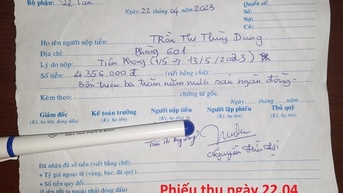 Bộ phận: Lễ Tân
Phiếu số:
Ngày 22 tháng 04 năm 2023
Nợ:
Có:
Họ tên người nộp tiền: Trần Thị Thùy Dung
Địa chỉ: Phòng 601
Lý do nộp: Tiền Phòng (1/5 → 13/5/2023)
Số tiền: 4 356.000 đ (viết bằng chữ):
Bốn triệu ba trăm năm mươi sáu ngàn đồng
Kèm theo: chứng từ gốc.
Giám đốc Kế toán trưởng Người nộp tiền Người lập phiếu Thủ quỹ
(Ký, họ tên, đóng dấu) (Ký, họ tên) (Ký, họ tên) (Ký, họ tên) (Ký, họ tên)
Đã nhận đủ số tiền (viết bằng chữ):
+ Tỷ giá ngoại tệ (vàng, bạc, đá quý):
+ Số tiền quy đổi:
Phiếu thu ngày 22.04